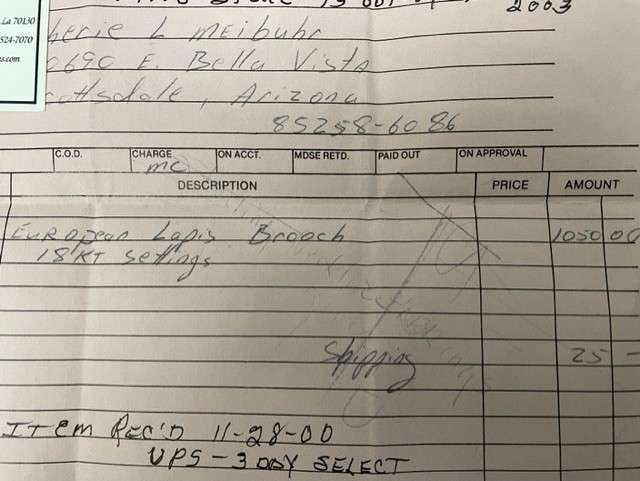 La 70130
524-7070
s.com
2003
berie L Meibuhr
0690 E. Bella Vista
cottsdale, Arizona
85258-6086
C.O.D. CHARGE ON ACCT. MDSE RETD. PAID OUT ON APPROVAL
MC
DESCRIPTION PRICE AMOUNT
European Lapis Brooch 1050 00
18 KT settings
Shipping 25 -
ITEM REC'D 11-28-00
UPS - 3 DAY SELECT